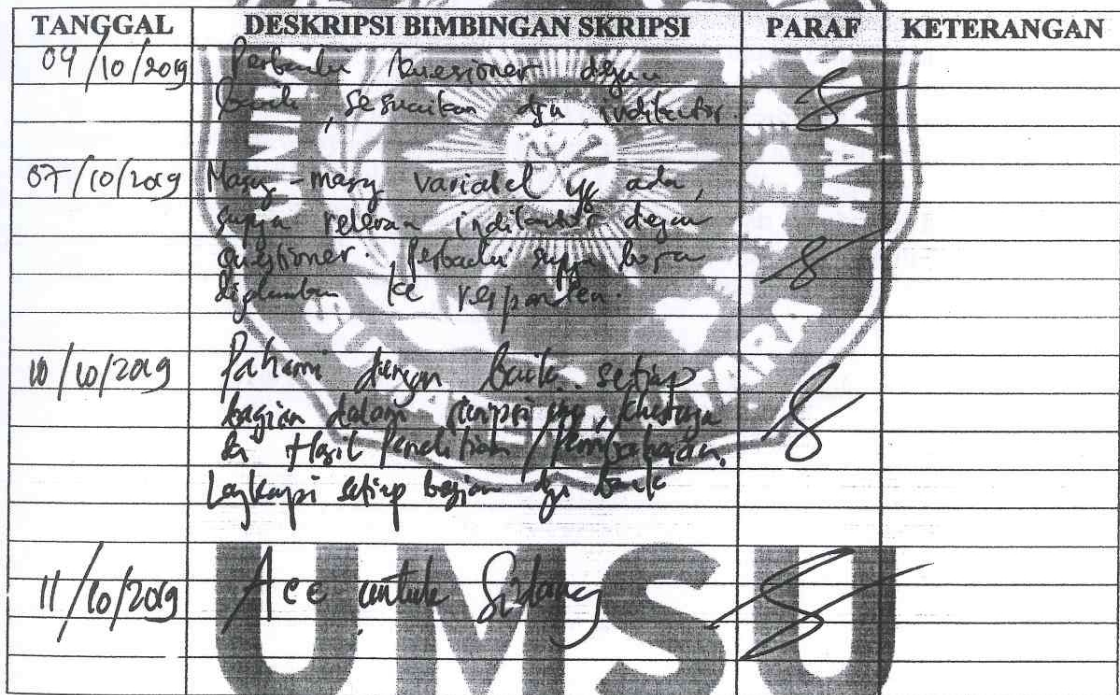 TANGGAL DESKRIPSI BIMBINGAN SKRIPSI PARAF KETERANGAN
04/10/2019 Perbaiki kuesioner dgan
baik, sesuaikan dgn indikator.
07/10/2019 Masing-masing variabel yg ada,
supya relevan indikator dgan
questioner. Perbaiki supya
ke responden.
10/10/2019 Pahami dengan baik setiap
bagian dalam skripsi ini, khususnya
di Hasil Penelitian / Pembahasan.
Lengkapi setiap bagian dgn baik
11/10/2019 Acc untuk Sidang
UMSU